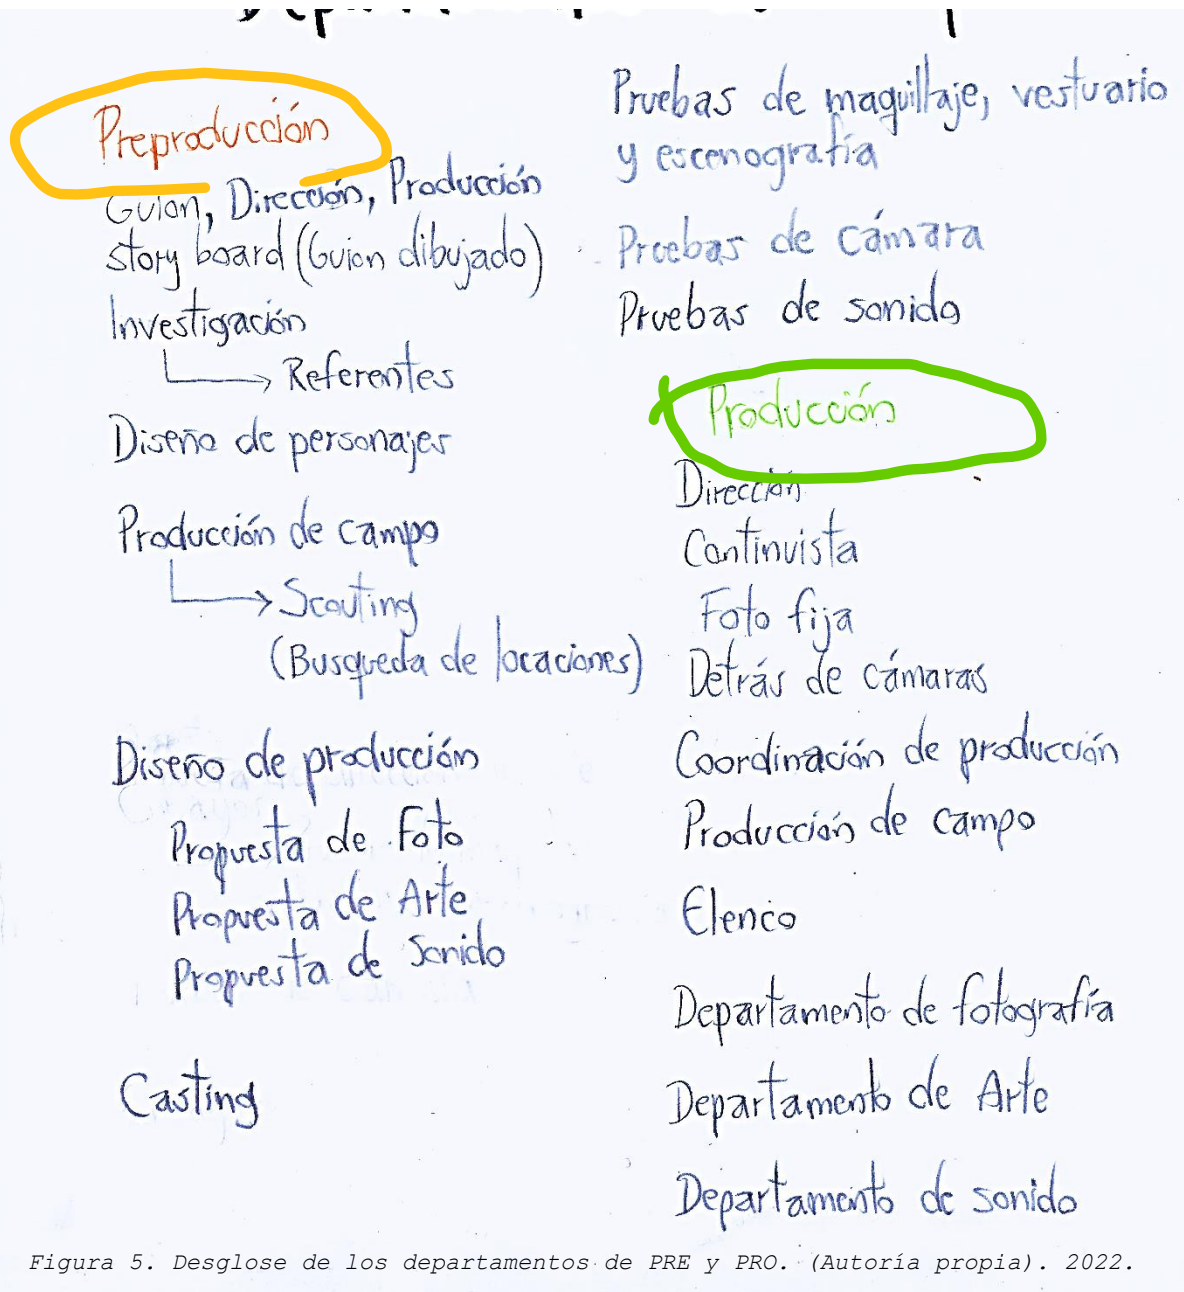 Preproducción
Guion, Dirección, Producción
story board (Guion dibujado)
Investigación
Referentes
Diseño de personajes
Producción de campo
Scouting
(Busqueda de locaciones)
Diseño de producción
Propuesta de Foto
Propuesta de Arte
Propuesta de Sonido
Casting
Pruebas de maquillaje, vestuario
y escenografía
Pruebas de cámara
Pruebas de sonido
Producción
Dirección
Continuista
Foto fija
Detrás de cámaras
Coordinación de producción
Producción de campo
Elenco
Departamento de fotografía
Departamento de Arte
Departamento de sonido
Figura 5. Desglose de los departamentos de PRE y PRO. (Autoría propia). 2022.